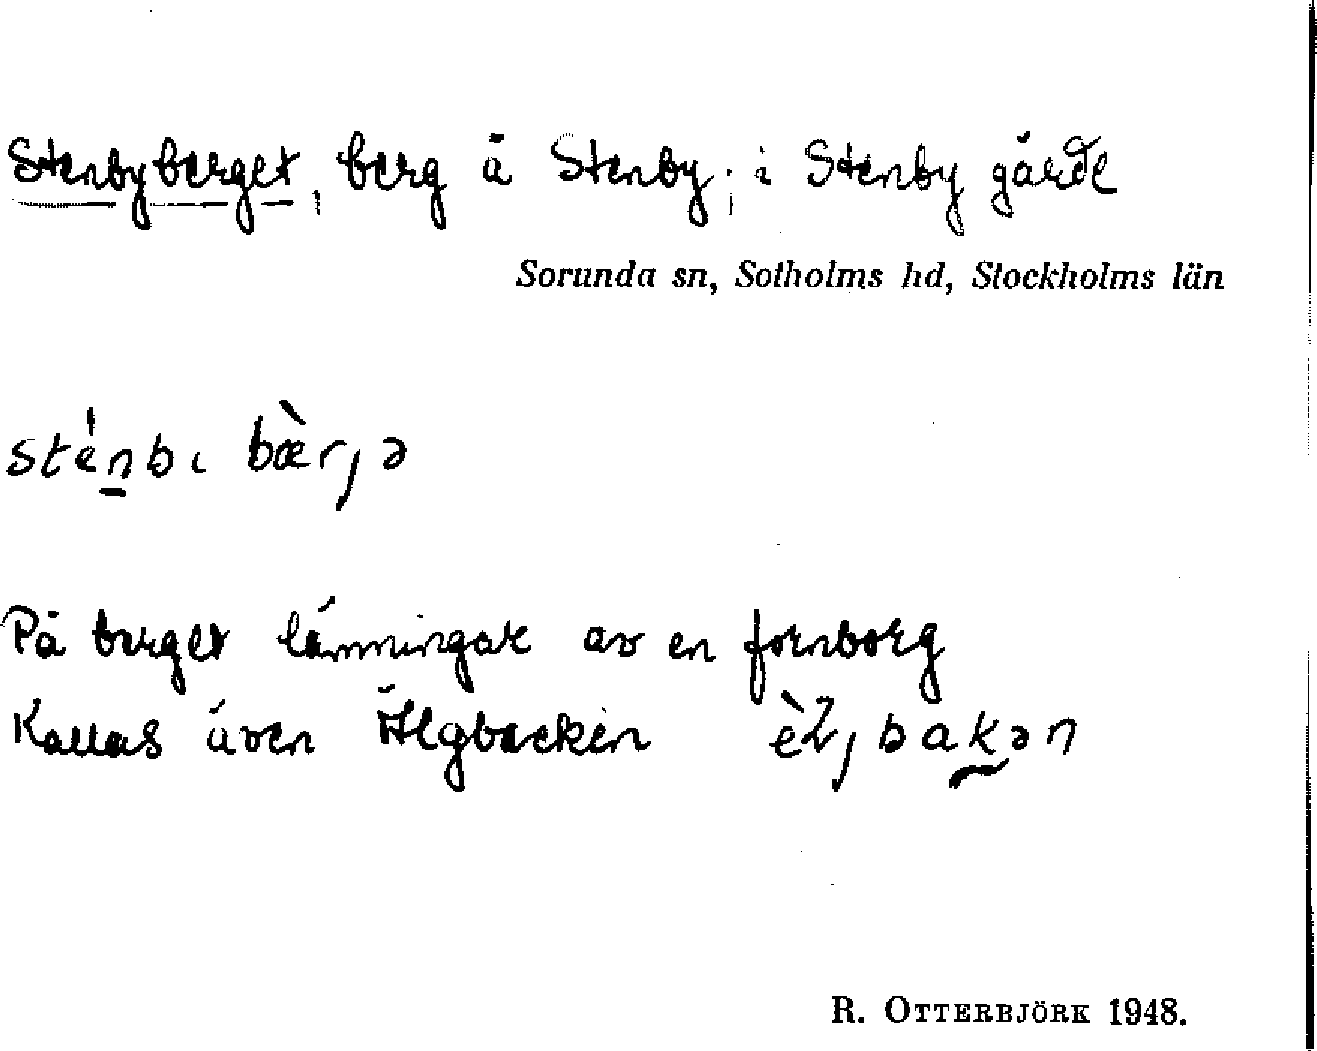 Stenbyberget, berg å Stenby; i Stenby gärde
Sorunda sn, Sotholms hd, Stockholms län
sténbɩ bæ̀rȷə
På berget lämningar av en fornborg
Kallas även Älgbacken ɛ̀lȷbakən
R. OTTERBJÖRK 1948.